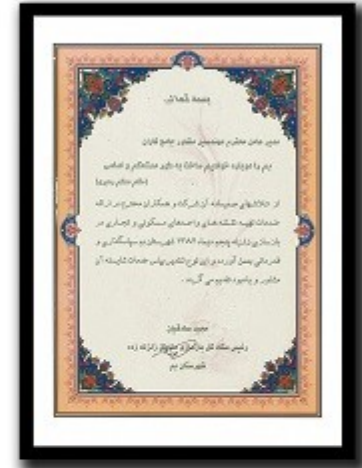 بسمه تعالی
مدیر عامل محترم مهندسین مشاور جامع کاران
بم را دوباره خواهیم ساخت به طور مستحکم و اساسی
(مقام معظم رهبری)
از تلاشهای صمیمانه آن شرکت و همکاران محترم در ارائه
خدمات تهیه نقشه های واحدهای مسکونی و تجاری در
بازسازی زلزله پنجم دیماه ۱۳۸۲ شهرستان بم سپاسگذاری و
قدردانی بعمل آورده و این لوح تقدیر بپاس خدمات شایسته آن
مشاور و یادبود تقدیم می گردد.
رئیس ستاد زلزله زده
شهرستان بم